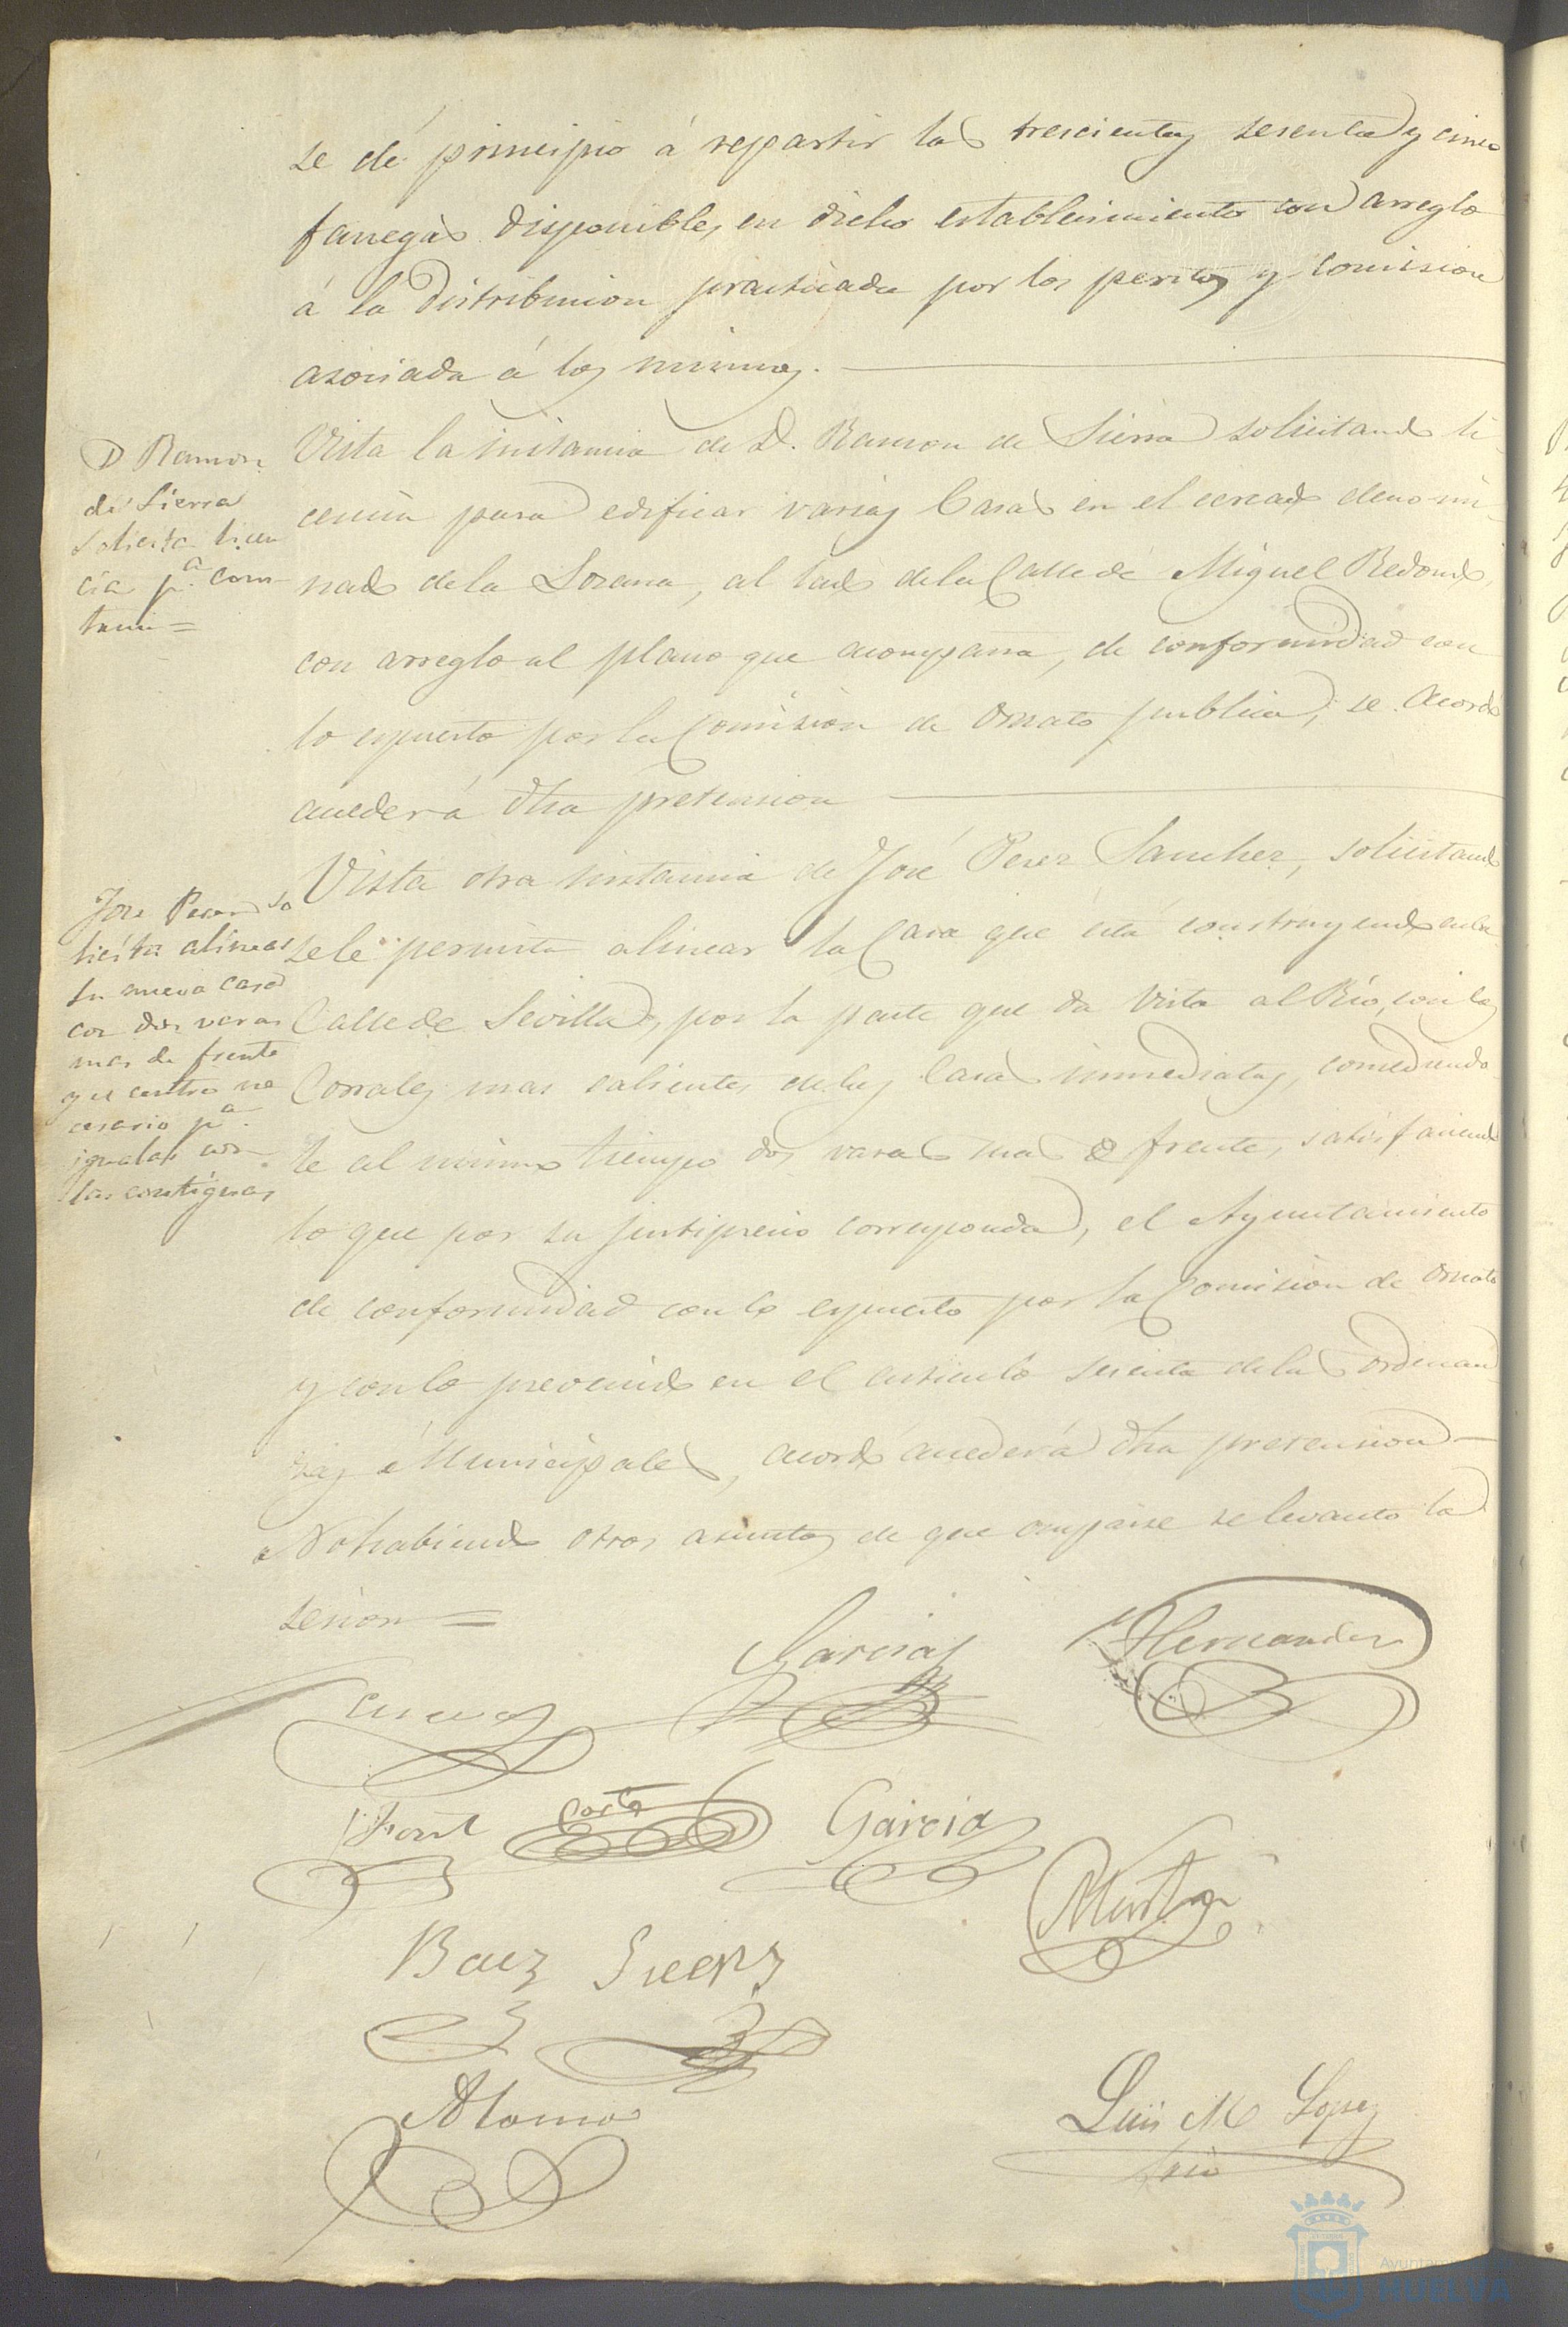 se dé principio á repartir las trescientas sesenta y cinco
fanegas disponibles en dicho establecimiento con arreglo
á la distribucion practicada por los peritos y comision
asociada á los mismos.
D Ramon
de Sierra
solicita licen
cia p.ª cons
truir=
Vista la instancia de D. Ramon de Sierra solicitando li
cencia para edificar varias Casas en el cercado denomi
nado de la Lozana, al lado de la Calle de Miguel Redondo,
con arreglo al plano que acompaña, de conformidad con
lo espuesto por la Comision de Ornato publico, se acordó
acceder á dha pretension
Jose Perez so
licita alinear
su nueva casa
con dos varas
mas de frente
y el centro ne
cesario p.ª
igualar con
las contiguas
Vista otra instancia de José Perez Sanchez, solicitando
se le permita alinear la Casa que está construyendo en la
Calle de Sevilla, por la parte que da vista al Rio, con los
Corrales mas salientes de las Casas inmediatas, concediendo
le al mismo tiempo dos varas mas de frente, satisfaciendo
lo que por su justiprecio corresponda, el Ayuntamiento
de conformidad con lo espuesto por la Comision de Ornato
y con lo prevenido en el articulo sesenta de las Ordenan
zas Municipales, acordó acceder á dha pretension
No habiendo otros asuntos de que ocuparse se levantó la
sesion=
Garcia Hernandez
Cuevas
Font Corte Garcia
Baez
Alamo
Luis M Lopez
Srio
Ayunta
HUELVA